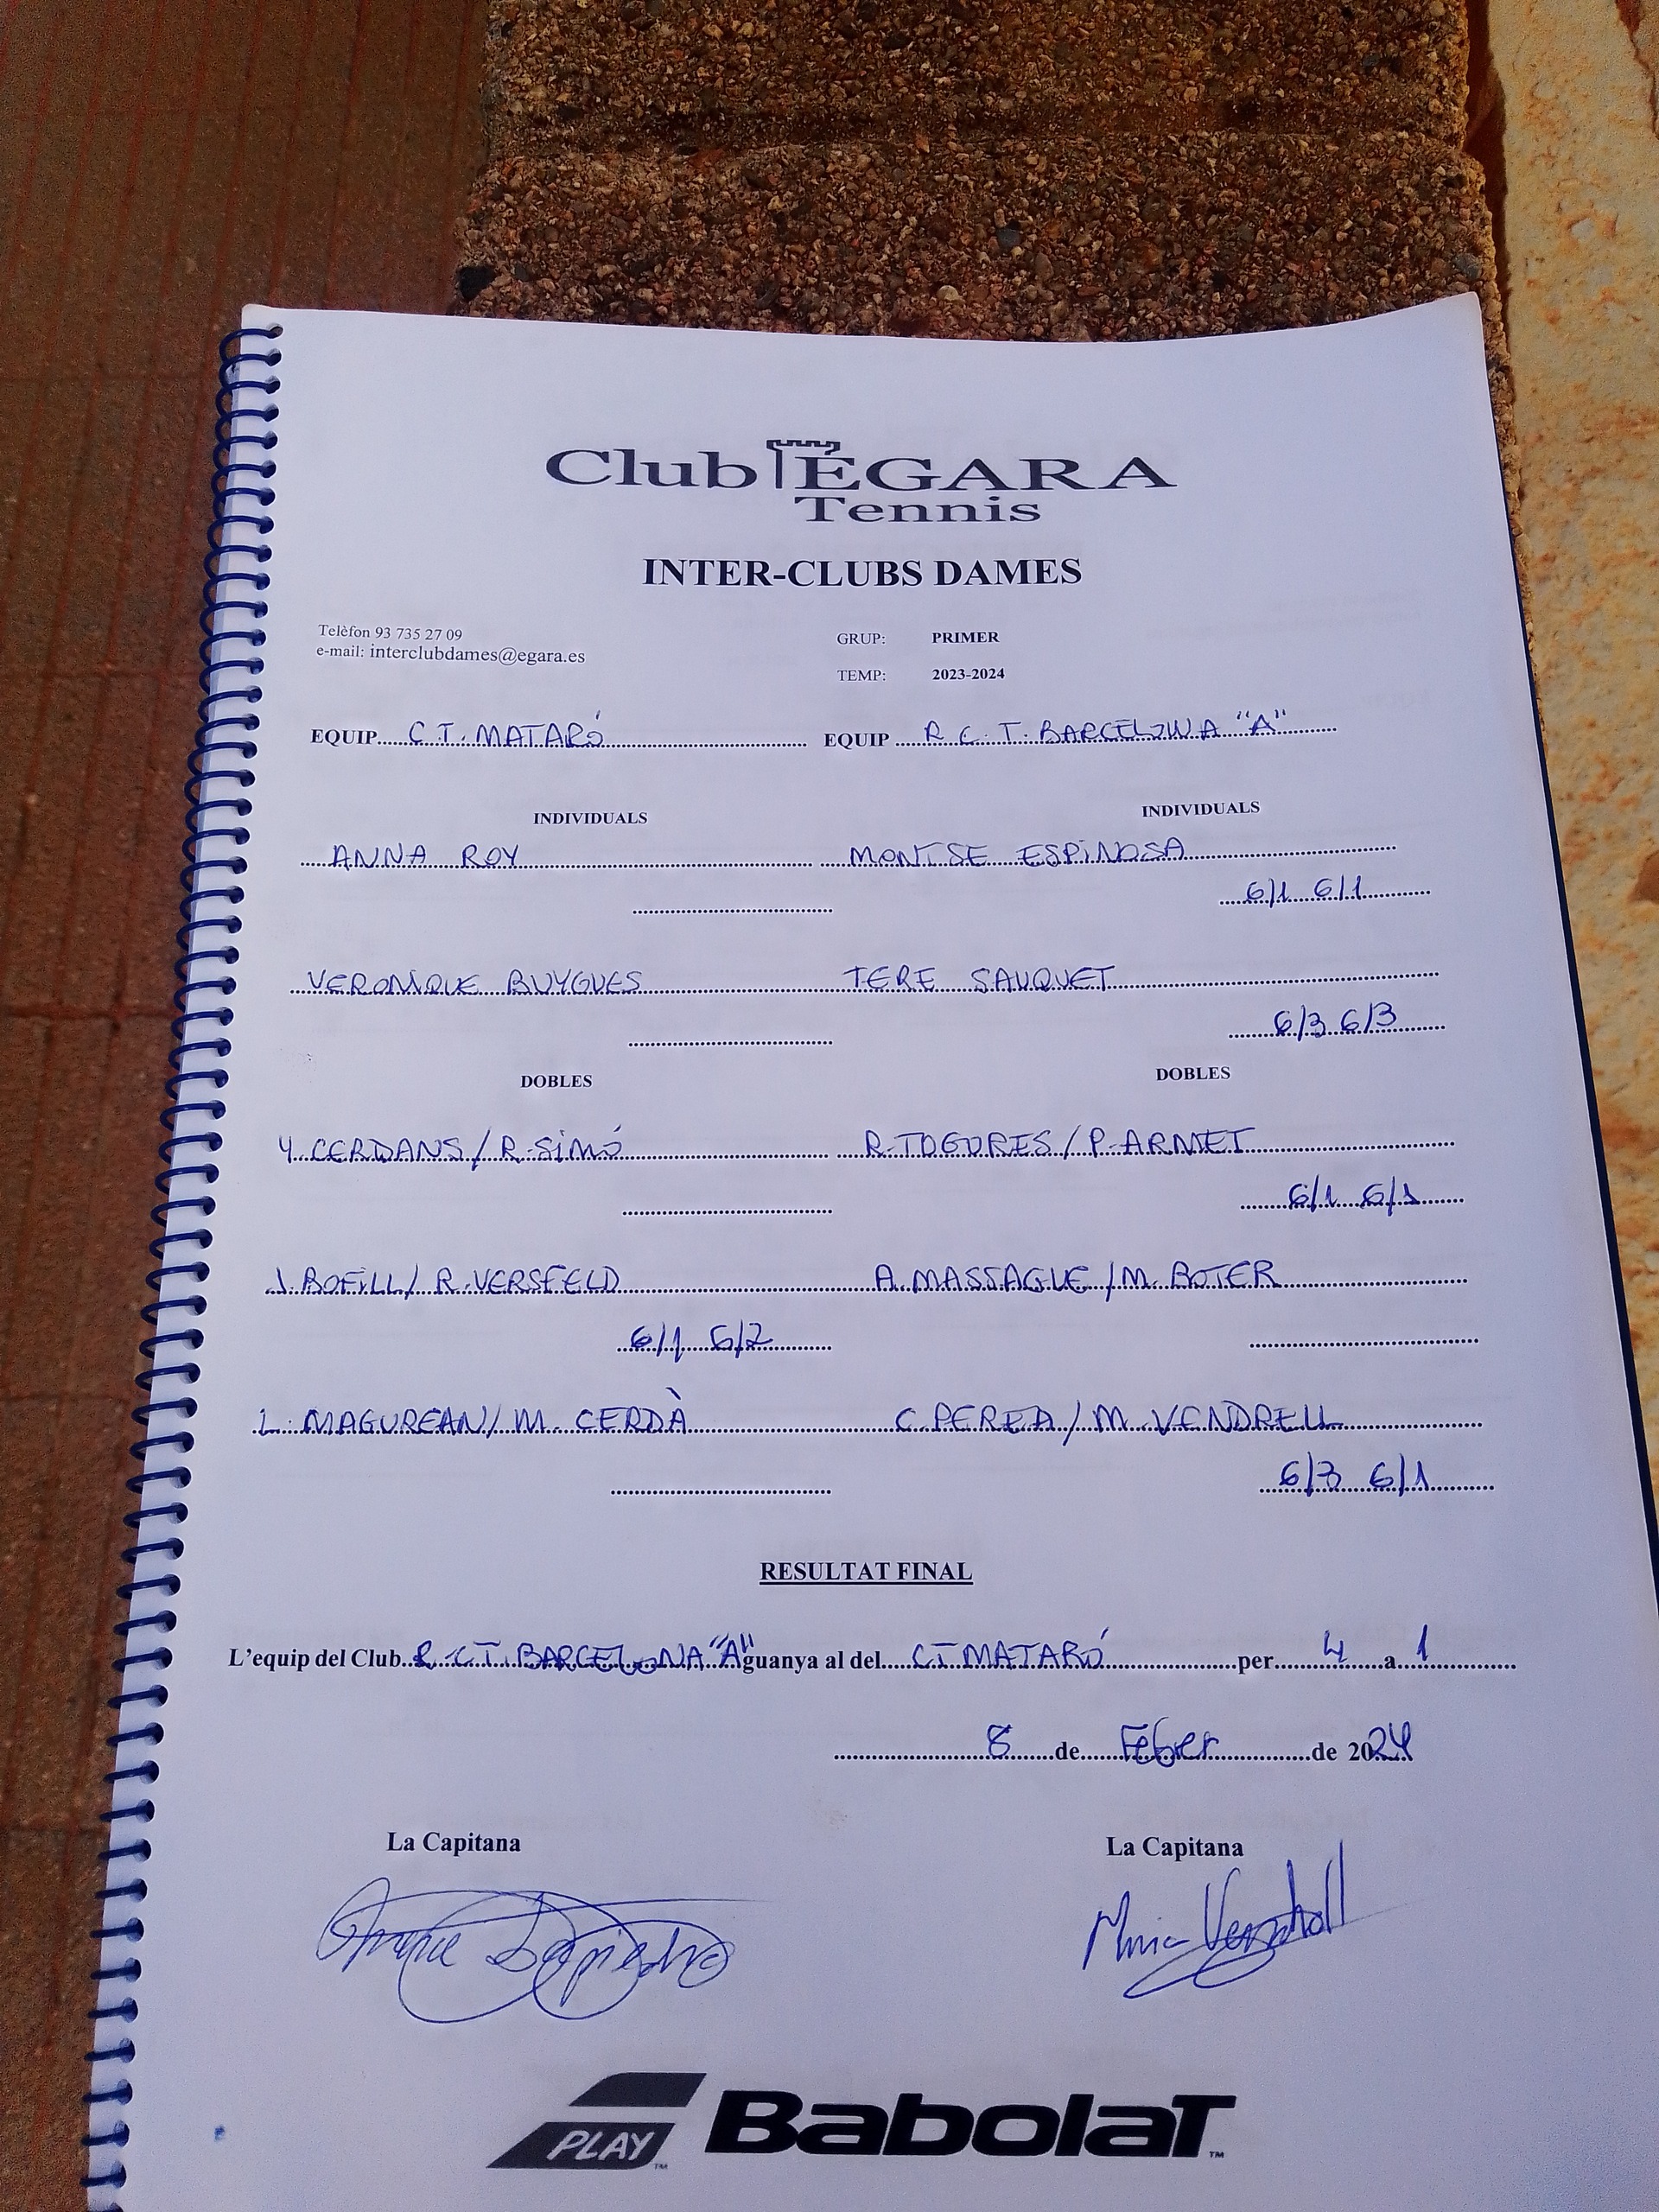 Club ÈGARA
Tennis
INTER-CLUBS DAMES
Telèfon 93 735 27 09
e-mail: interclubdames@egara.es
GRUP: PRIMER
TEMP: 2023-2024
EQUIP C.T. MATARÓ EQUIP R.C.T. BARCELONA "A"
INDIVIDUALS INDIVIDUALS
ANNA ROY MONTSE ESPINOSA
6/1 6/1
VERONIQUE BUYGUES TERE SAUQUET
6/3 6/3
DOBLES DOBLES
Y. CERDANS / R. SIMÓ R. TOGORES / P. ARMET
6/1 6/1
J. BOFILL / R. VERSFELD A. MASSAGUE / M. BOTER
6/1 6/2
L. MAGUREAN / M. CERDÀ C. PEREA / M. VENDRELL
6/3 6/1
RESULTAT FINAL
L'equip del Club R.C.T. BARCELONA "A" guanya al del CT MATARÓ per 4 a 1
8 de Febrer de 2024
La Capitana La Capitana
Vendrell
PLAY Babolat